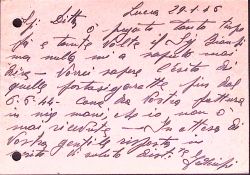 Lucca 29.1.45
Spj. Ditta
ò pregato tanto tempo
fà e tante volte il Sig.
ma nulla mi a saputo mai
dire – Vorrei sapere l'esito di
quelle portasigarette fin dal
5.5.44 – come da vostra fattura
in mie mani, che io non ò
mai ricevute – In attesa di
vostra gentile risposta in
merito vi saluto